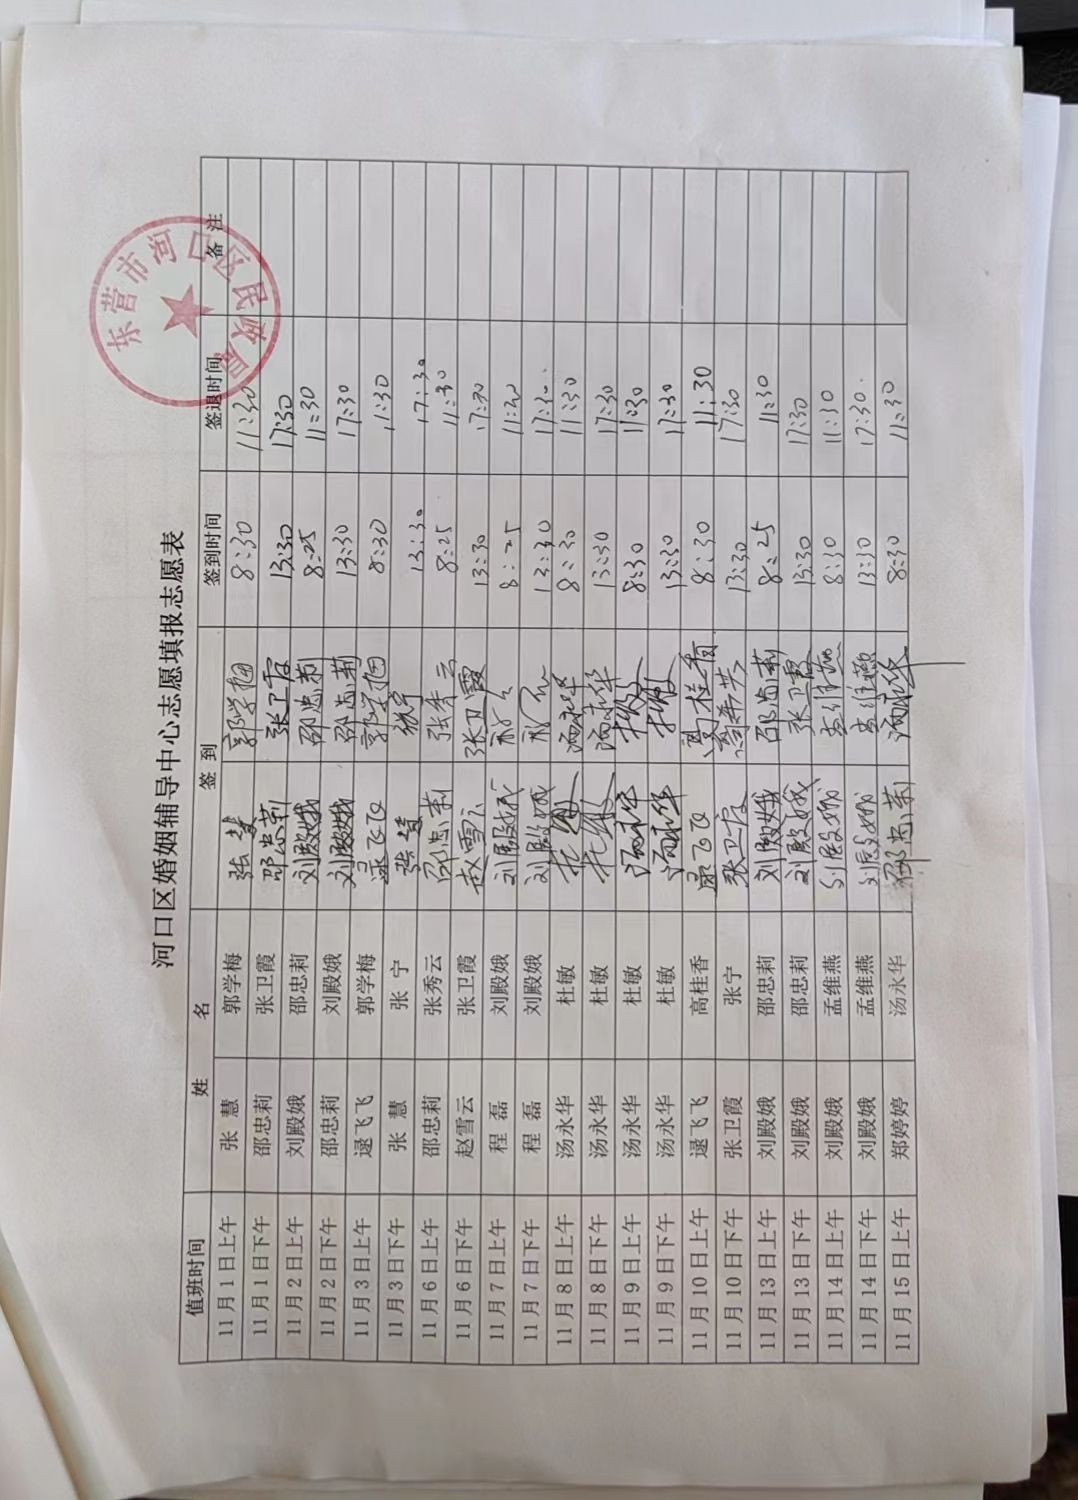 河口区婚姻辅导中心志愿填报志愿表
东营市河口区民政局
值班时间 姓 名 签到 签到时间 签退时间 备注
11月1日上午 张 慧 郭学梅 张慧 郭学梅 8:30 11:30
11月1日下午 邵忠莉 张卫霞 邵忠莉 张卫霞 13:30 17:30
11月2日上午 刘殿娥 邵忠莉 刘殿娥 邵忠莉 8:25 11:30
11月2日下午 邵忠莉 刘殿娥 刘殿娥 邵忠莉 13:30 17:30
11月3日上午 逯飞飞 郭学梅 逯飞飞 郭学梅 8:30 11:30
11月3日下午 张 慧 张 宁 张慧 张宁 13:30 17:30
11月6日上午 邵忠莉 张秀云 邵忠莉 张秀云 8:25 11:30
11月6日下午 赵雪云 张卫霞 赵雪云 张卫霞 13:30 17:30
11月7日上午 程 磊 刘殿娥 刘殿娥 8:25 11:20
11月7日下午 程 磊 刘殿娥 刘殿娥 13:30 17:30
11月8日上午 汤永华 杜敏 杜敏 汤永华 8:30 11:30
11月8日下午 汤永华 杜敏 杜敏 汤永华 13:30 17:30
11月9日上午 汤永华 杜敏 汤永华 杜敏 8:30 11:30
11月9日下午 汤永华 杜敏 汤永华 杜敏 13:30 17:30
11月10日上午 逯飞飞 高桂香 逯飞飞 高桂香 8:30 11:30
11月10日下午 张卫霞 张宁 张卫霞 13:30 17:30
11月13日上午 刘殿娥 邵忠莉 刘殿娥 邵忠莉 8:25 11:30
11月13日下午 刘殿娥 邵忠莉 刘殿娥 张卫霞 13:30 17:30
11月14日上午 刘殿娥 孟维燕 刘殿娥 孟维燕 8:30 11:30
11月14日下午 刘殿娥 孟维燕 刘殿娥 孟维燕 13:30 17:30
11月15日上午 郑婷婷 汤永华 邵忠莉 汤永华 8:30 11:30